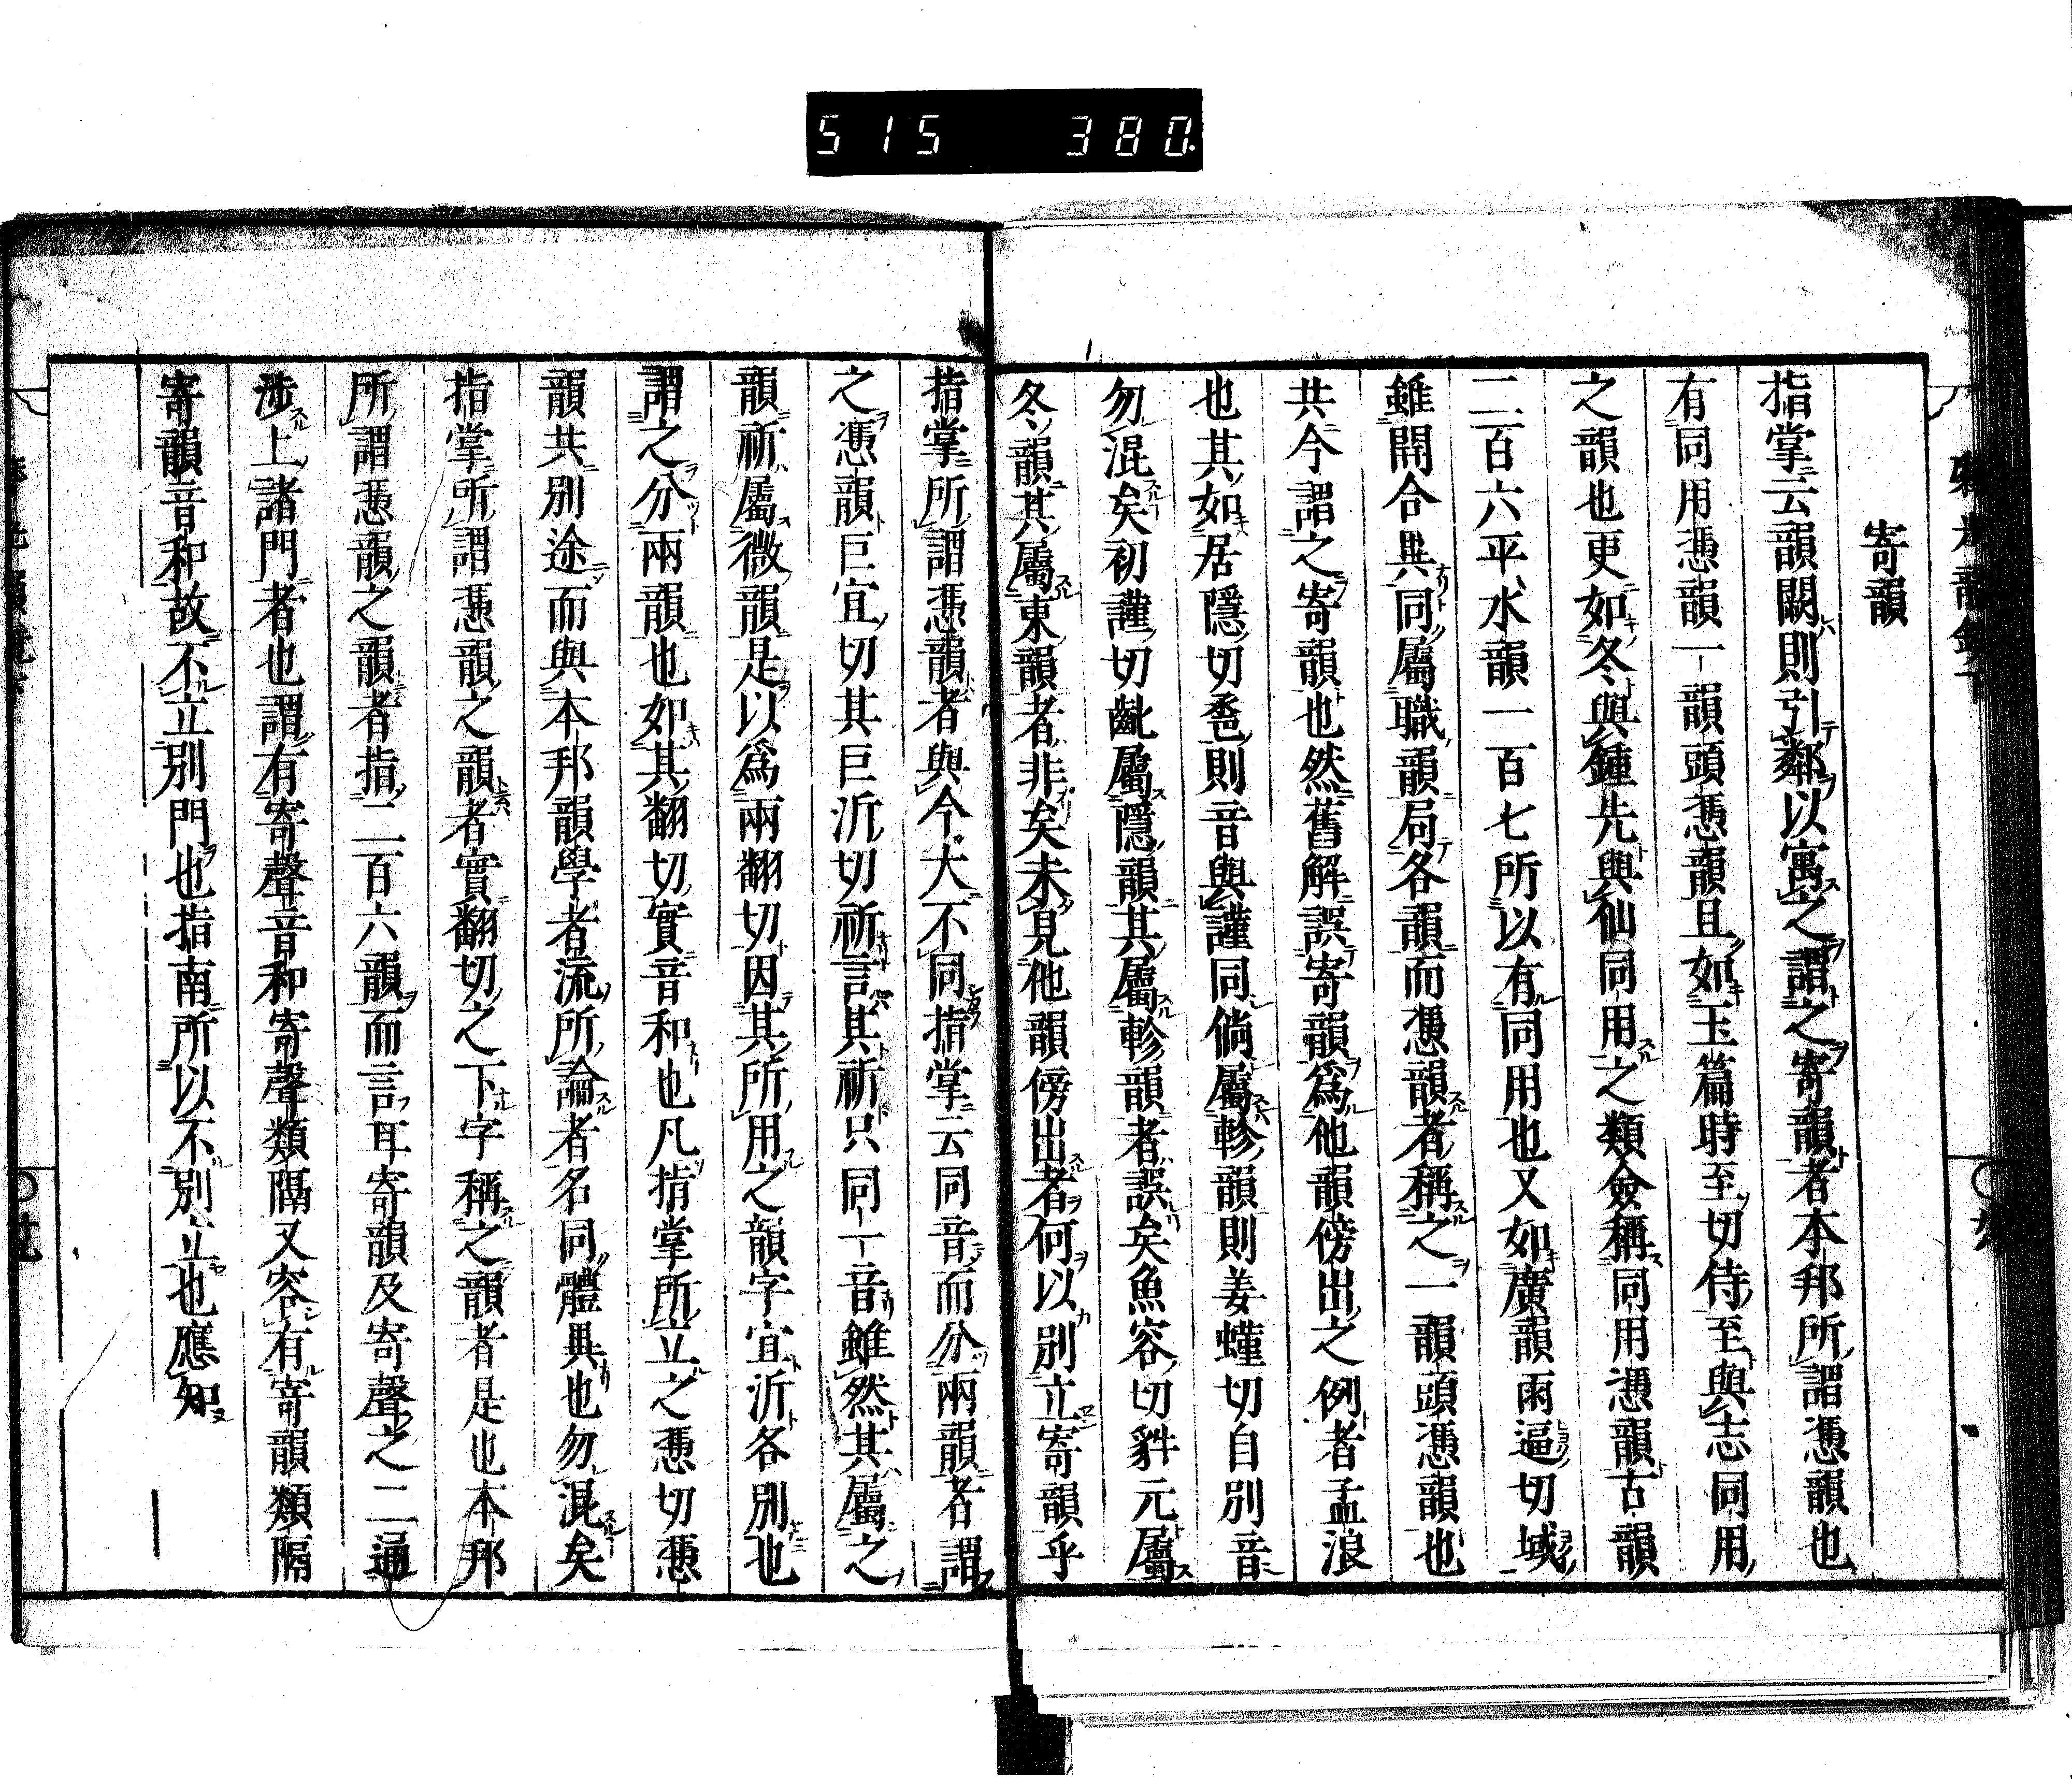 515 380
寄韻
指掌云韻闕則引鄰以寓之謂之寄韻者本邦所謂憑韻也
有同用憑韻一韻頭憑韻且如玉篇時至切侍至與志同用
之韻也更如冬與鍾先與仙同用之類僉稱同用憑韻古韻
二百六平水韻一百七所以有同用也又如廣韻雨逼切域
雖開合異同屬職韻局各韻而憑韻者稱之一韻頭憑韻也
共今謂之寄韻也然舊解誤寄韻爲他韻傍出之例者孟浪
也其如居隱切巹則音與謹同倘屬軫韻則姜螼切自別音
勿混矣初謹切齔屬隱韻其屬軫韻者誤矣魚容切元屬
冬韻其屬東韻者非矣未見他韻傍出者何以別立寄韻乎
指掌所謂憑韻者與今大不同指掌云同音而分兩韻者謂
之憑韻巨宜切其巨沂切祈言其祈只同一音雖然其屬之
韻祈屬微韻是以爲兩翻切因其所用之韻字宜沂各別也
謂之分兩韻也如其翻切實音和也凡指掌所立之憑切憑
韻共別途而與本邦韻學者流所論者名同體異也勿混矣
指掌所謂憑韻之韻者實翻切之下字稱之韻者是也本邦
所謂憑韻之韻者指二百六韻而言耳寄韻及寄聲之二通
涉上諸門者也謂有寄聲音和寄聲類隔又容有寄韻類隔
寄韻音和故不立別門也指南所以不別立也應知